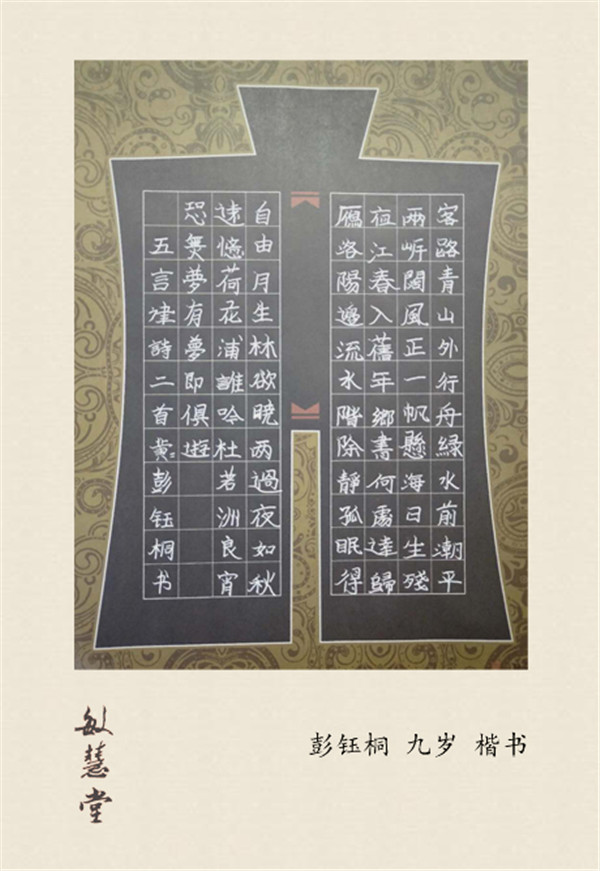 客路青山外行舟綠水前潮平
兩岸闊風正一帆懸海日生殘
夜江春入舊年鄉書何處達歸
鴈洛陽邊流水階除靜孤眠得
自由月生林欲曉两過夜如秋
遠憶荷花浦誰吟杜若洲良宵
恐無夢有夢即俱遊
五言律詩二首彭钰桐书
敏慧堂
彭钰桐 九岁 楷书